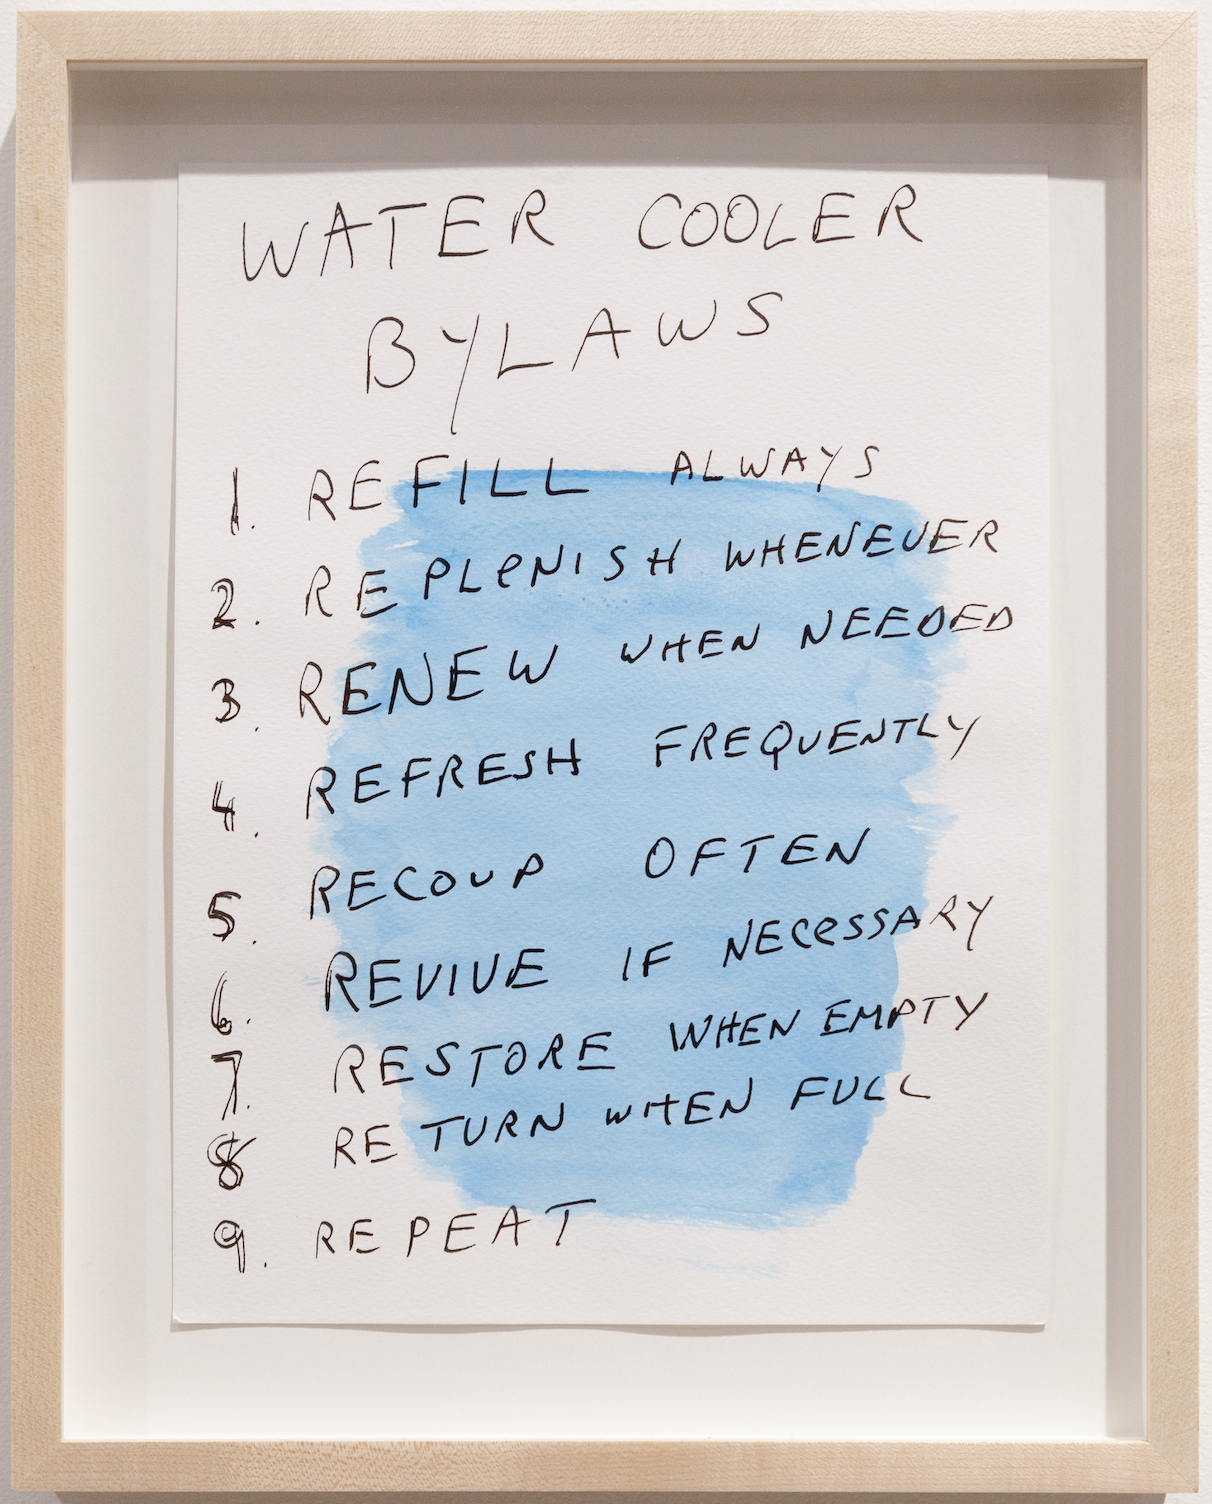 WATER COOLER
BYLAWS
1. REFILL ALWAYS
2. REPLENISH WHENEVER
3. RENEW WHEN NEEDED
4. REFRESH FREQUENTLY
5. RECOUP OFTEN
6. REVIVE IF NECESSARY
7. RESTORE WHEN EMPTY
8 RETURN WHEN FULL
9. REPEAT